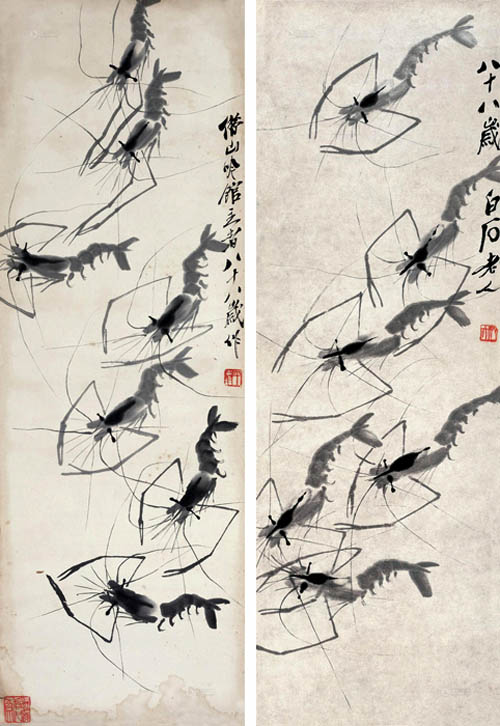 借山吟館主者八十八歲作
八十八歲
白石老人